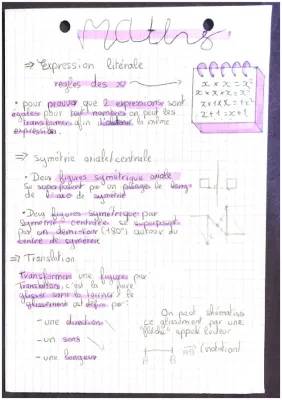 Maths
⇒ Expression litérale
regles des x
x × x = x²
x × x × x = x³
x + 1 = x + 1
• pour prouver que 2 expressions sont
égales pour tout nombres on peut les
transformer afin d' la même
expression.
⇒ symétrie axiale/centrale
• Deux figures symétrique axiale
Se superposent par un pliage le long
de l'axe de symétrie
• Deux figures symétrique par
symétrie centrale se superposent
par un demi-tour (180°) autour du
centre de symétrie
⇒ Translation
Transformer une figure par
translation, c'est la faire
glisser sans la tourner le
glissement est défini par :
- une direction
- un sens
- une longueur
On peut schématiser
ce glissement par une
"flèche" appelé vecteur
(notation)